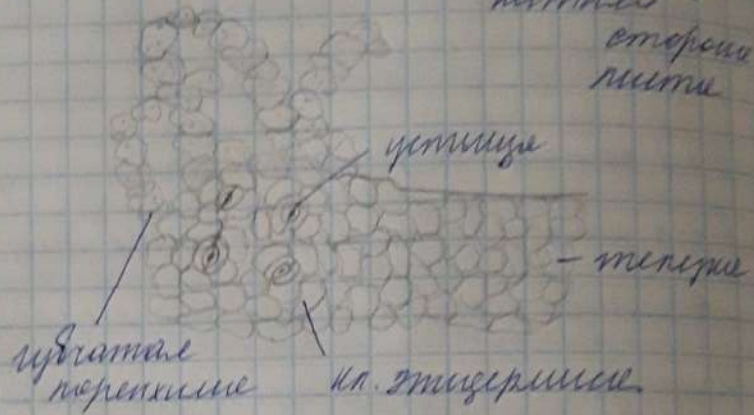 стороне
листа
устьица
губчатая
паренхима
кл. эпидермиса